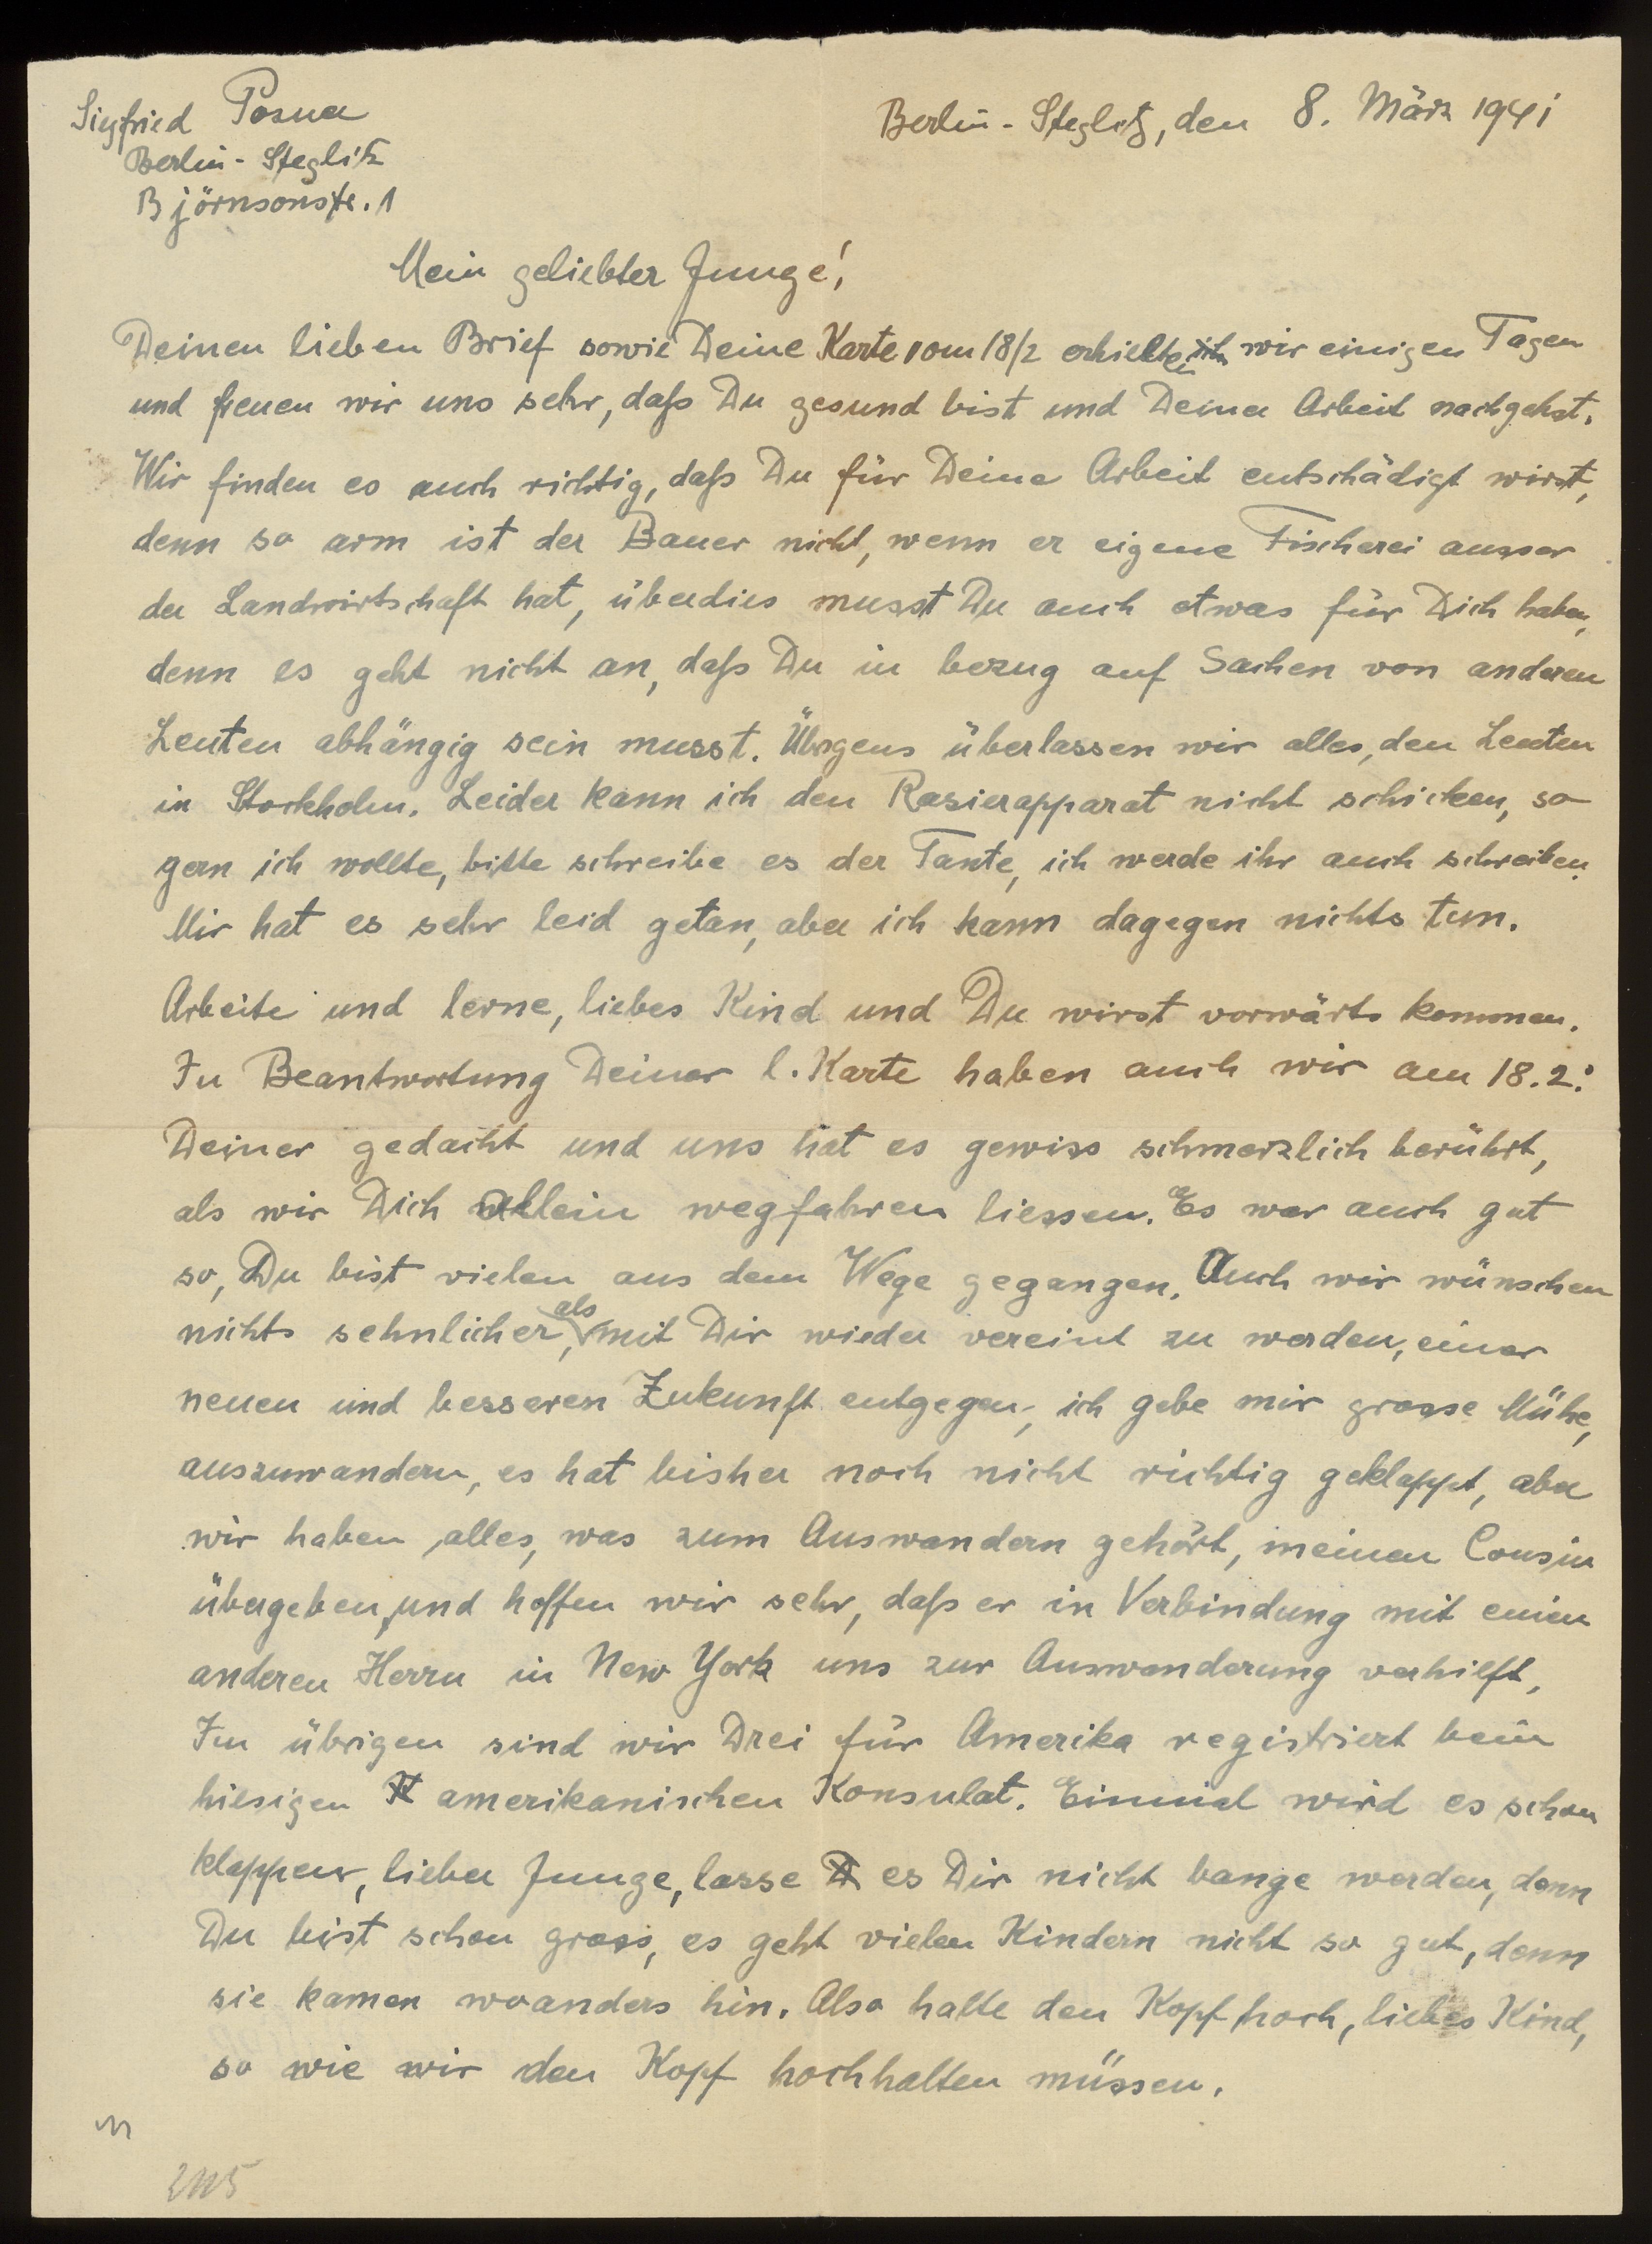 Siegfried Posner
Berlin-Steglitz
Björnsonstr. 1
Berlin-Steglitz, den 8. März 1941
Mein geliebter Junge!
Deinen lieben Brief sowie Deine Karte vom 18/2 erhielten wir einigen Tagen
und freuen wir uns sehr, daß Du gesund bist und Deiner Arbeit nachgehst.
Wir finden es auch richtig, daß Du für Deine Arbeit entschädigt wirst,
denn so arm ist der Bauer nicht, wenn er eigene Fischerei ausser
der Landwirtschaft hat, überdies musst Du auch etwas für Dich haben,
denn es geht nicht an, daß Du in bezug auf Sachen von anderen
Leuten abhängig sein musst. Übrigens überlassen wir alles, den Leuten
in Stockholm. Leider kann ich den Rasierapparat nicht schicken, so
gern ich wollte, bitte schreibe es der Tante, ich werde ihr auch schreiben.
Mir hat es sehr leid getan, aber ich kann dagegen nichts tun.
Arbeite und lerne, liebes Kind und Du wirst vorwärts kommen.
In Beantwortung Deiner l. Karte haben auch wir am 18.2.
Deiner gedacht und uns hat es gewiss schmerzlich berührt,
als wir Dich allein wegfahren liessen. Es war auch gut
so, Du bist vielen aus dem Wege gegangen. Auch wir wünschen
nichts sehnlicher, als mit Dir wieder vereint zu werden, einer
neuen und besseren Zukunft entgegen, ich gebe mir grosse Mühe,
auszuwandern, es hat bisher noch nicht richtig geklappt, aber
wir haben alles, was zum Auswandern gehört, meinen Cousin
übergeben, und hoffen wir sehr, daß er in Verbindung mit einem
anderen Herrn in New York uns zur Auswanderung verhilft,
Im übrigen sind wir Drei für Amerika registriert beim
hiesigen amerikanischen Konsulat. Einmal wird es schon
klappen, lieber Junge, lasse es Dir nicht bange werden, denn
Du bist schon gross, es geht vielen Kindern nicht so gut, denn
sie kamen woanders hin. Also halte den Kopf hoch, liebes Kind,
so wie wir den Kopf hochhalten müssen.